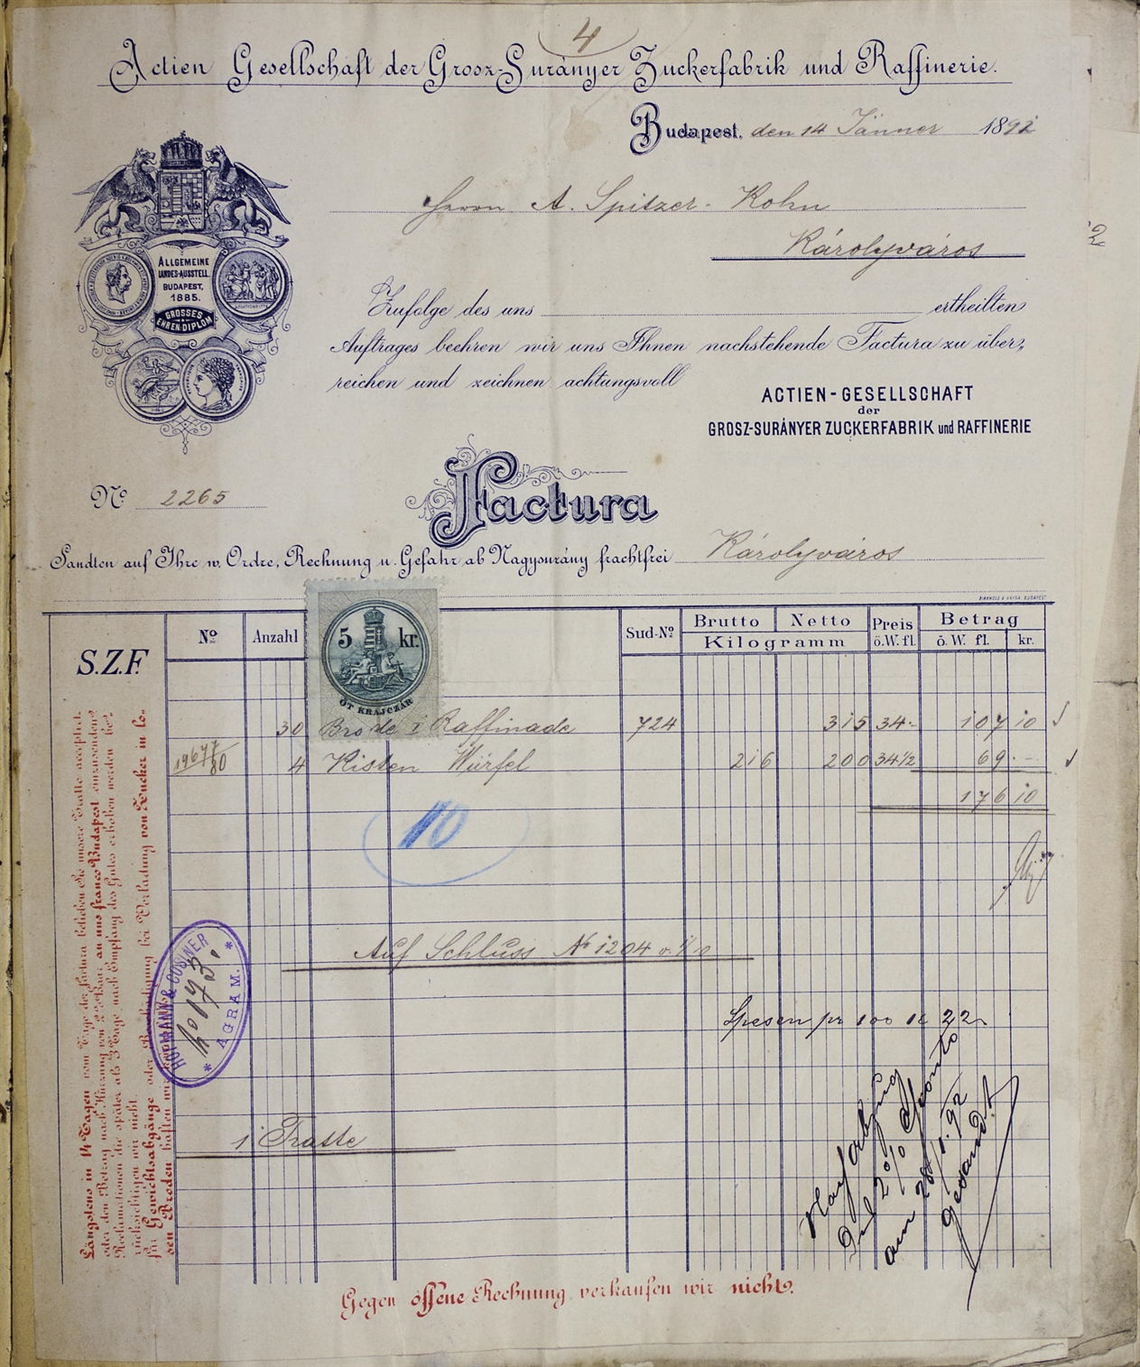 4
Actien Gesellschaft der Grosz-Surányer Zuckerfabrik und Raffinerie.
Budapest, den 14 Jänner 1892
Herrn A. Spitzer-Kohn
Károlyváros
2
ALLGEMEINE
LANDES-AUSSTELL.
BUDAPEST,
1885.
GROSSES
EHREN-DIPLOM
Zufolge des uns ertheilten
Auftrages beehren wir uns Ihnen nachstehende Factura zu über-
reichen und zeichnen achtungsvoll
ACTIEN-GESELLSCHAFT
der
GROSZ-SURÁNYER ZUCKERFABRIK und RAFFINERIE
No 2265
Factura
Sandten auf Ihre w. Ordre, Rechnung u. Gefahr ab Nagysurány frachtfrei Károlyváros
S.Z.F.
No Anzahl Sud-No Brutto Netto Preis Betrag
Kilogramm ö.W. fl. ö. W. fl. kr.
5 kr.
ÖT KRAJCZÁR
30 Brode i Raffinade 724 315 34- 107 10
19677/80 4 Kisten Würfel 216 200 34 1/2 69 -
176 10
10
Auf Schluss No 1204
HOFMANN &
No 173.
AGRAM.
Spesen pr 100 K 22
1 Tratte
Nach Abzug
2% Sconto
am 28/1. 92
gesandt
Längstens in 14 Tagen vom Tage der Factura belieben Sie unsere Tratte acceptirt
oder den Betrag nach Kürzung von 2% Sconto an uns franco Budapest einzusenden.
Reclamationen die später als 3 Tage nach Empfang des Gutes erhoben werden be-
rücksichtigen wir nicht.
für Gewichtsabgänge oder Beschädigung bei Verladung von Zucker in lo-
sen Broden haften wir
Gegen offene Rechnung verkaufen wir nicht.